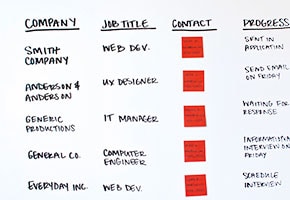 COMPANY JOB TITLE CONTACT PROGRESS
SMITH COMPANY WEB DEV. SENT IN APPLICATION
ANDERSON & ANDERSON UX DESIGNER SEND EMAIL ON FRIDAY
GENERIC PRODUCTIONS IT MANAGER WAITING FOR RESPONSE
GENERAL CO. COMPUTER ENGINEER INFORMATIONAL INTERVIEW ON FRIDAY
EVERYDAY INC. WEB DEV. SCHEDULE INTERVIEW